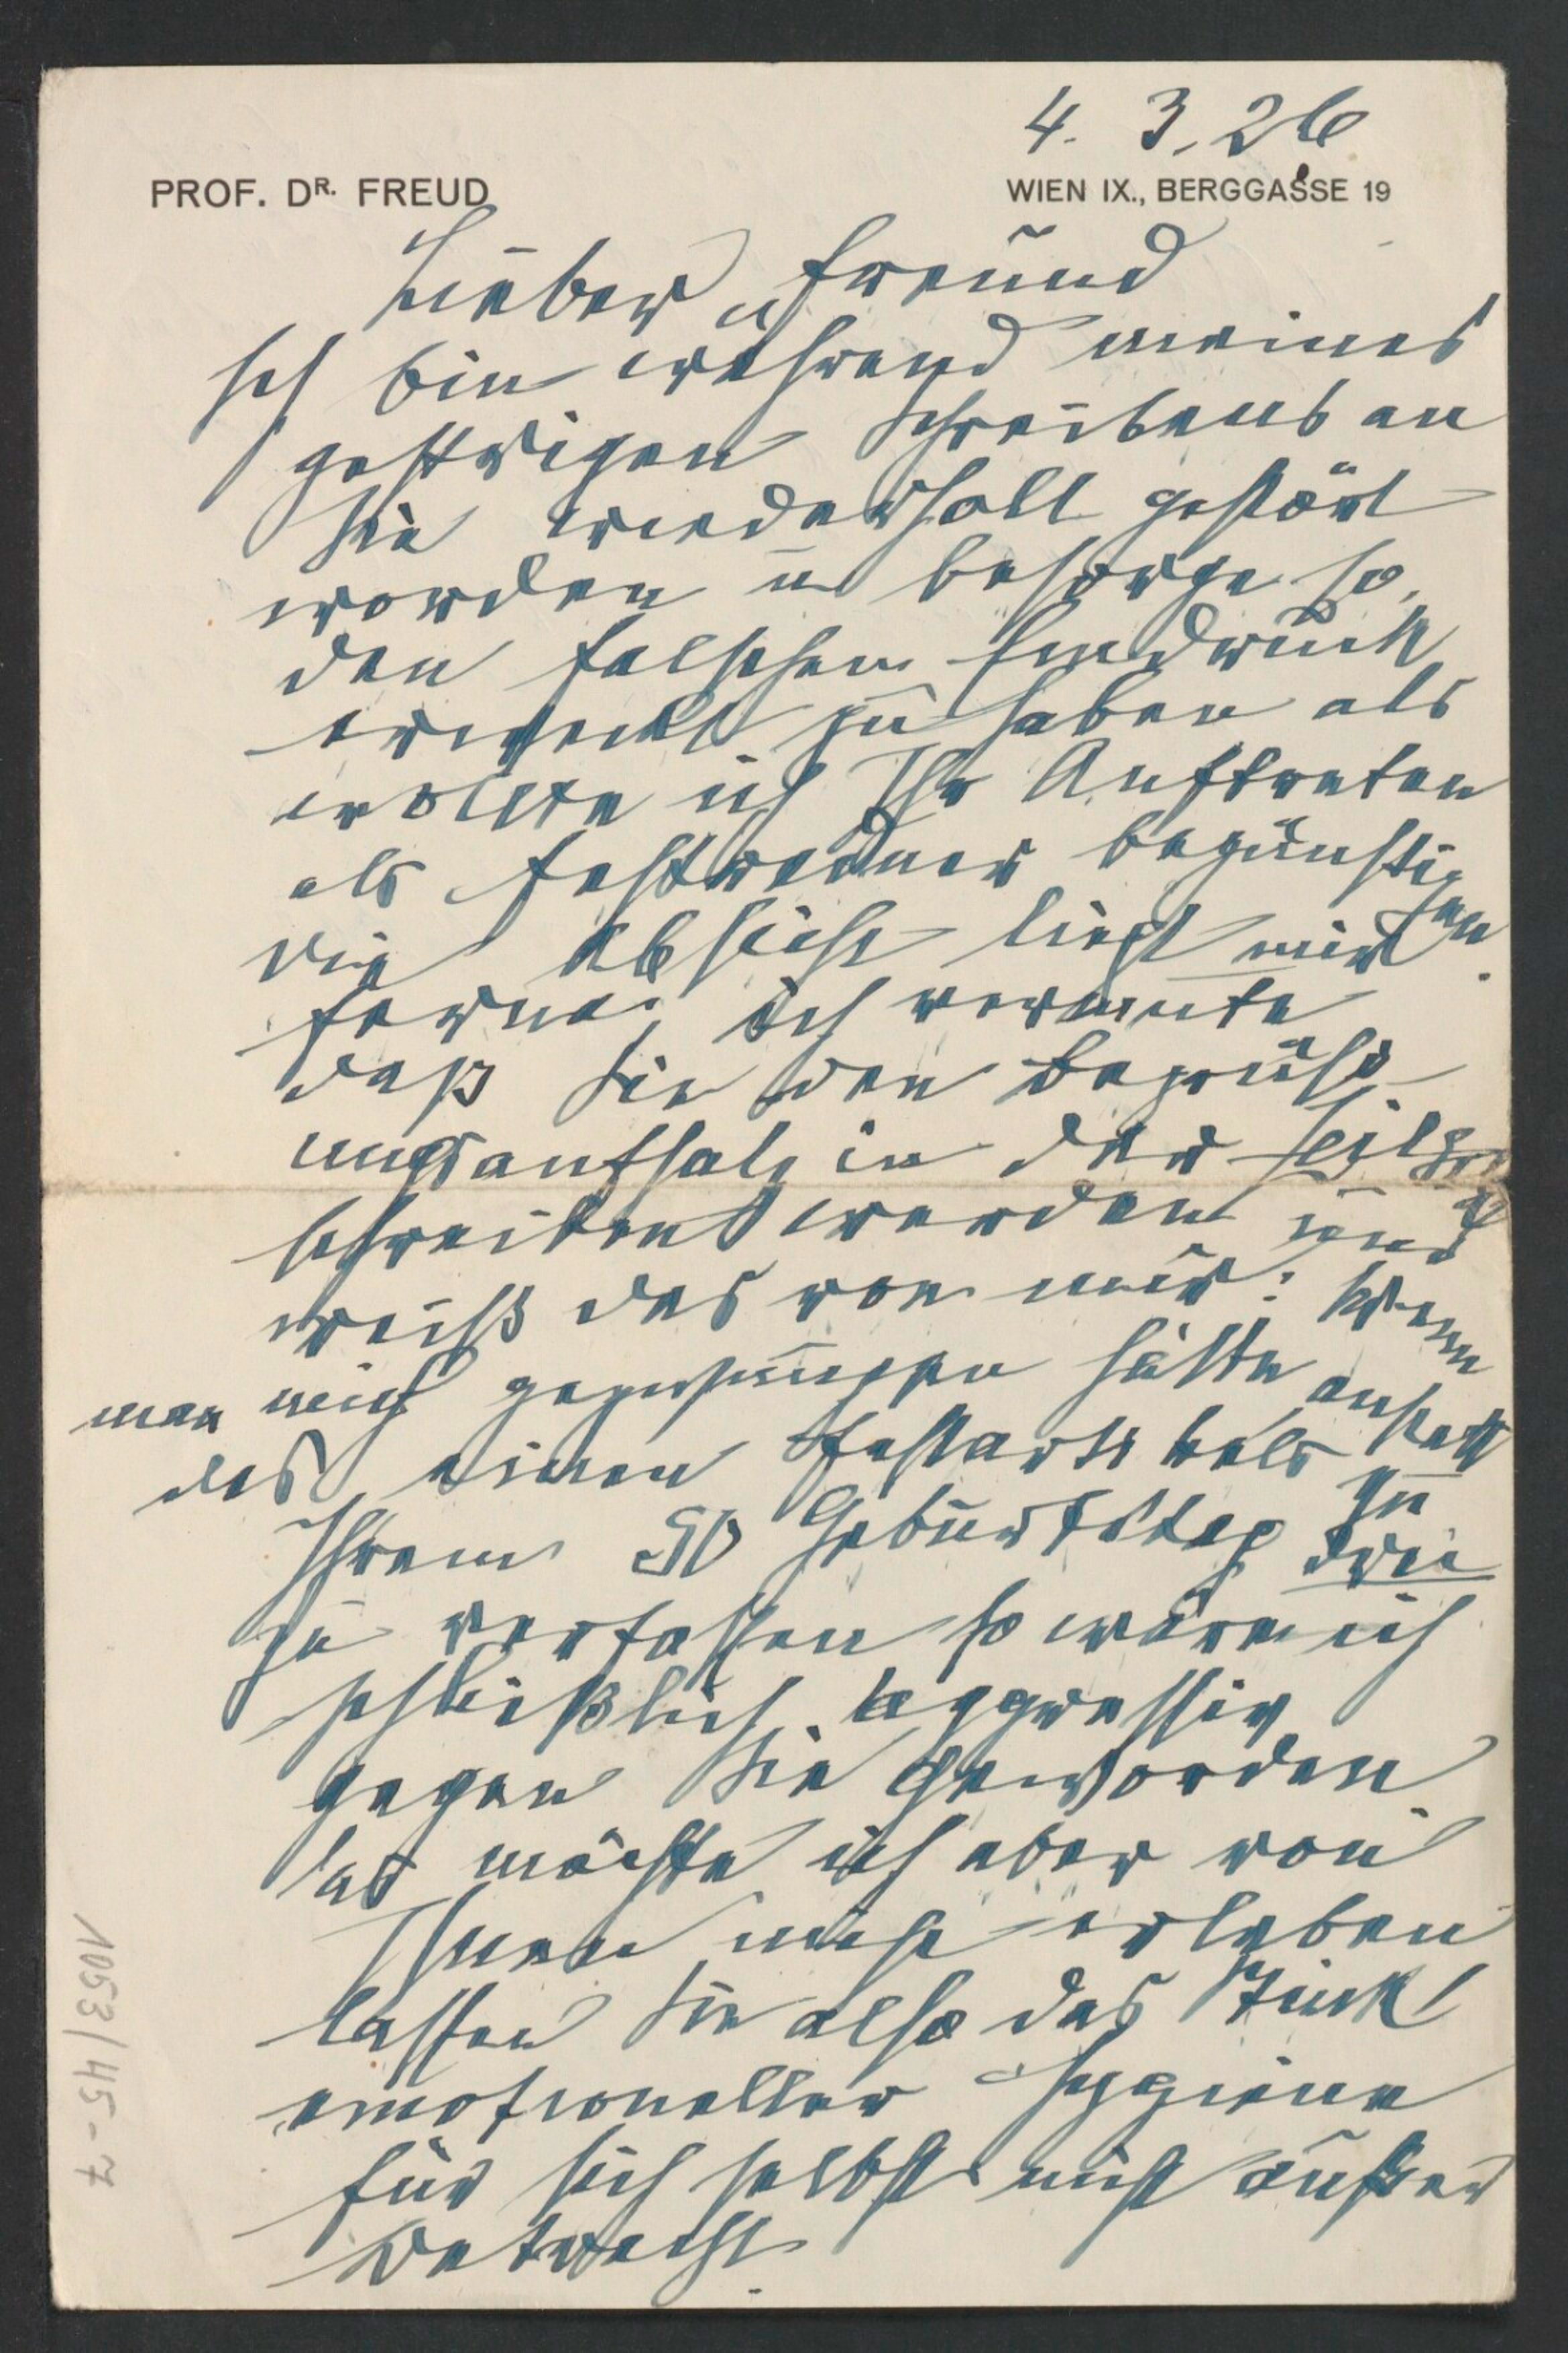 4. 3. 26
PROF. DR. FREUD
WIEN IX., BERGGASSE 19
Lieber Freund
Ich bin während meines
gestrigen Schreibens an
Sie wiederholt gestört
worden u besorge so,
den falschen Eindruck
erweckt zu haben als
wollte ich Ihr Auftreten
als Festredner begünstigen
Die Absicht liegt mir
ferne; ich vermute
daß Sie den Begrüß-
ungsaufsatz in der Ztschr
schreiben werden und
weiß das von mir: Wenn
man mich gezwungen hätte anstatt
des einen Festartikels zu
Ihrem 50 Geburtstag drei
zu verfassen so wäre ich
schließlich aggressiv
gegen Sie geworden
Das möchte ich aber von
Ihnen nicht erleben
lassen Sie also das Stück
emotioneller Hygiene
für sich selbst nicht außer
Betracht.
1053/45-7